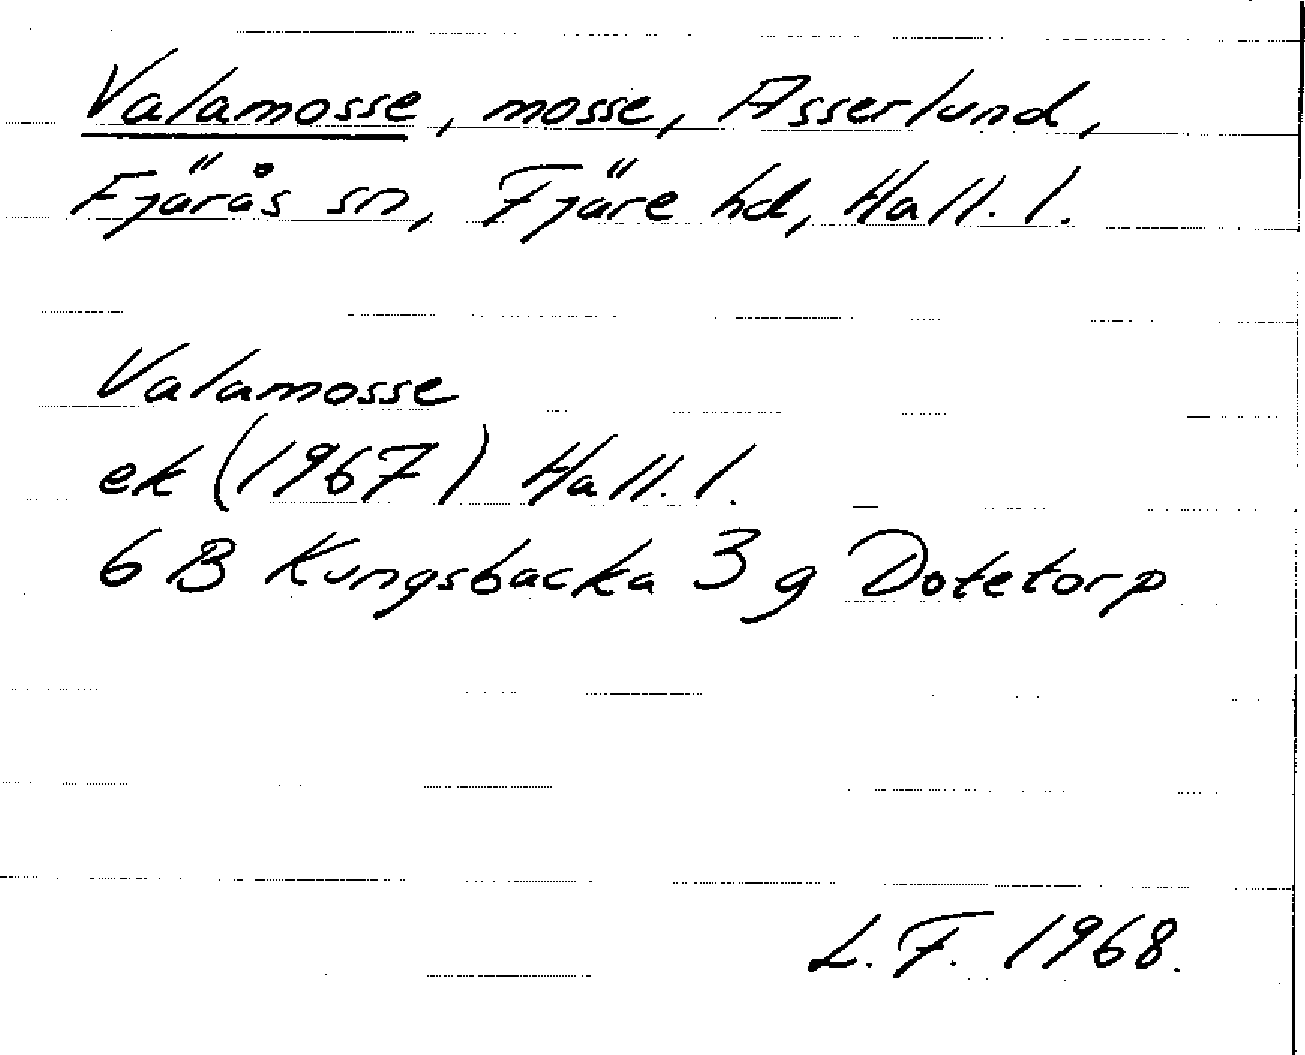 Valamosse, mosse, Asserlund,
Fjärås sn, Fjäre hd, Hall. l.
Valamosse
ek (1967) Hall. l.
6 B Kungsbacka 3 g Dotetorp
L. F. 1968.